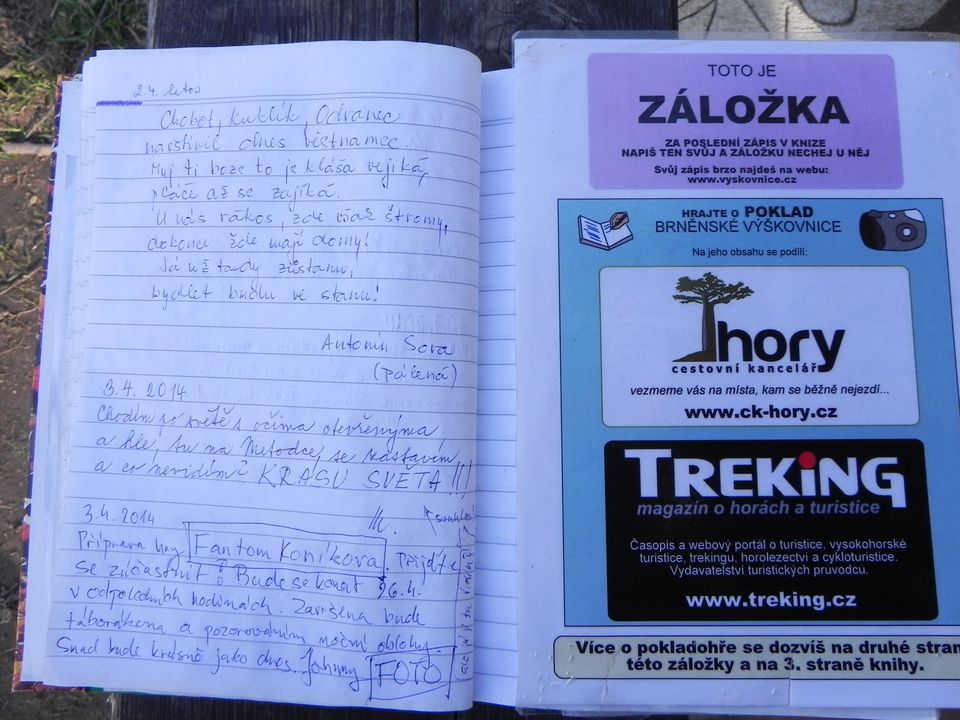 2.4. letos
Chobot, Kuklík, Odranec
navštívil dnes vietnamec
Můj ti bože to je kláša vejiká,
pláči až se zajíká.
U nás rákos, zde však štromy,
dokonce žde mají domy!
Já už tardy zůstanu,
bydlet budu ve stanu!
Antonín Sova
(pálená)
3.4. 2014
Chodím po světě s očima otevřenýma
a hle, tu na Metodce se zastavím
a co nevidím? KRÁSU SVĚTA!!!
3.4.2014
Příprava hry Fantom Koníkova. Přijďte
se zúčastnit! Bude se konat 26.4.
v odpoledních hodinách. Završena bude
táborákem a pozorováním noční oblohy.
Snad bude krásně jako dnes. Johnny FOTO
TOTO JE
ZÁLOŽKA
ZA POSLEDNÍ ZÁPIS V KNIZE
NAPIŠ TEN SVŮJ A ZÁLOŽKU NECHEJ U NĚJ
Svůj zápis brzo najdeš na webu:
www.vyskovnice.cz
HRAJTE O POKLAD
BRNĚNSKÉ VÝŠKOVNICE
Na jeho obsahu se podílí:
hory
cestovní kancelář
vezmeme vás na místa, kam se běžně nejezdí...
www.ck-hory.cz
TREKING
magazín o horách a turistice
Časopis a webový portál o turistice, vysokohorské
turistice, trekingu, horolezectví a cykloturistice.
Vydavatelství turistických pruvodcu.
www.treking.cz
Více o pokladohře se dozvíš na druhé stran
této záložky a na 3. straně knihy.